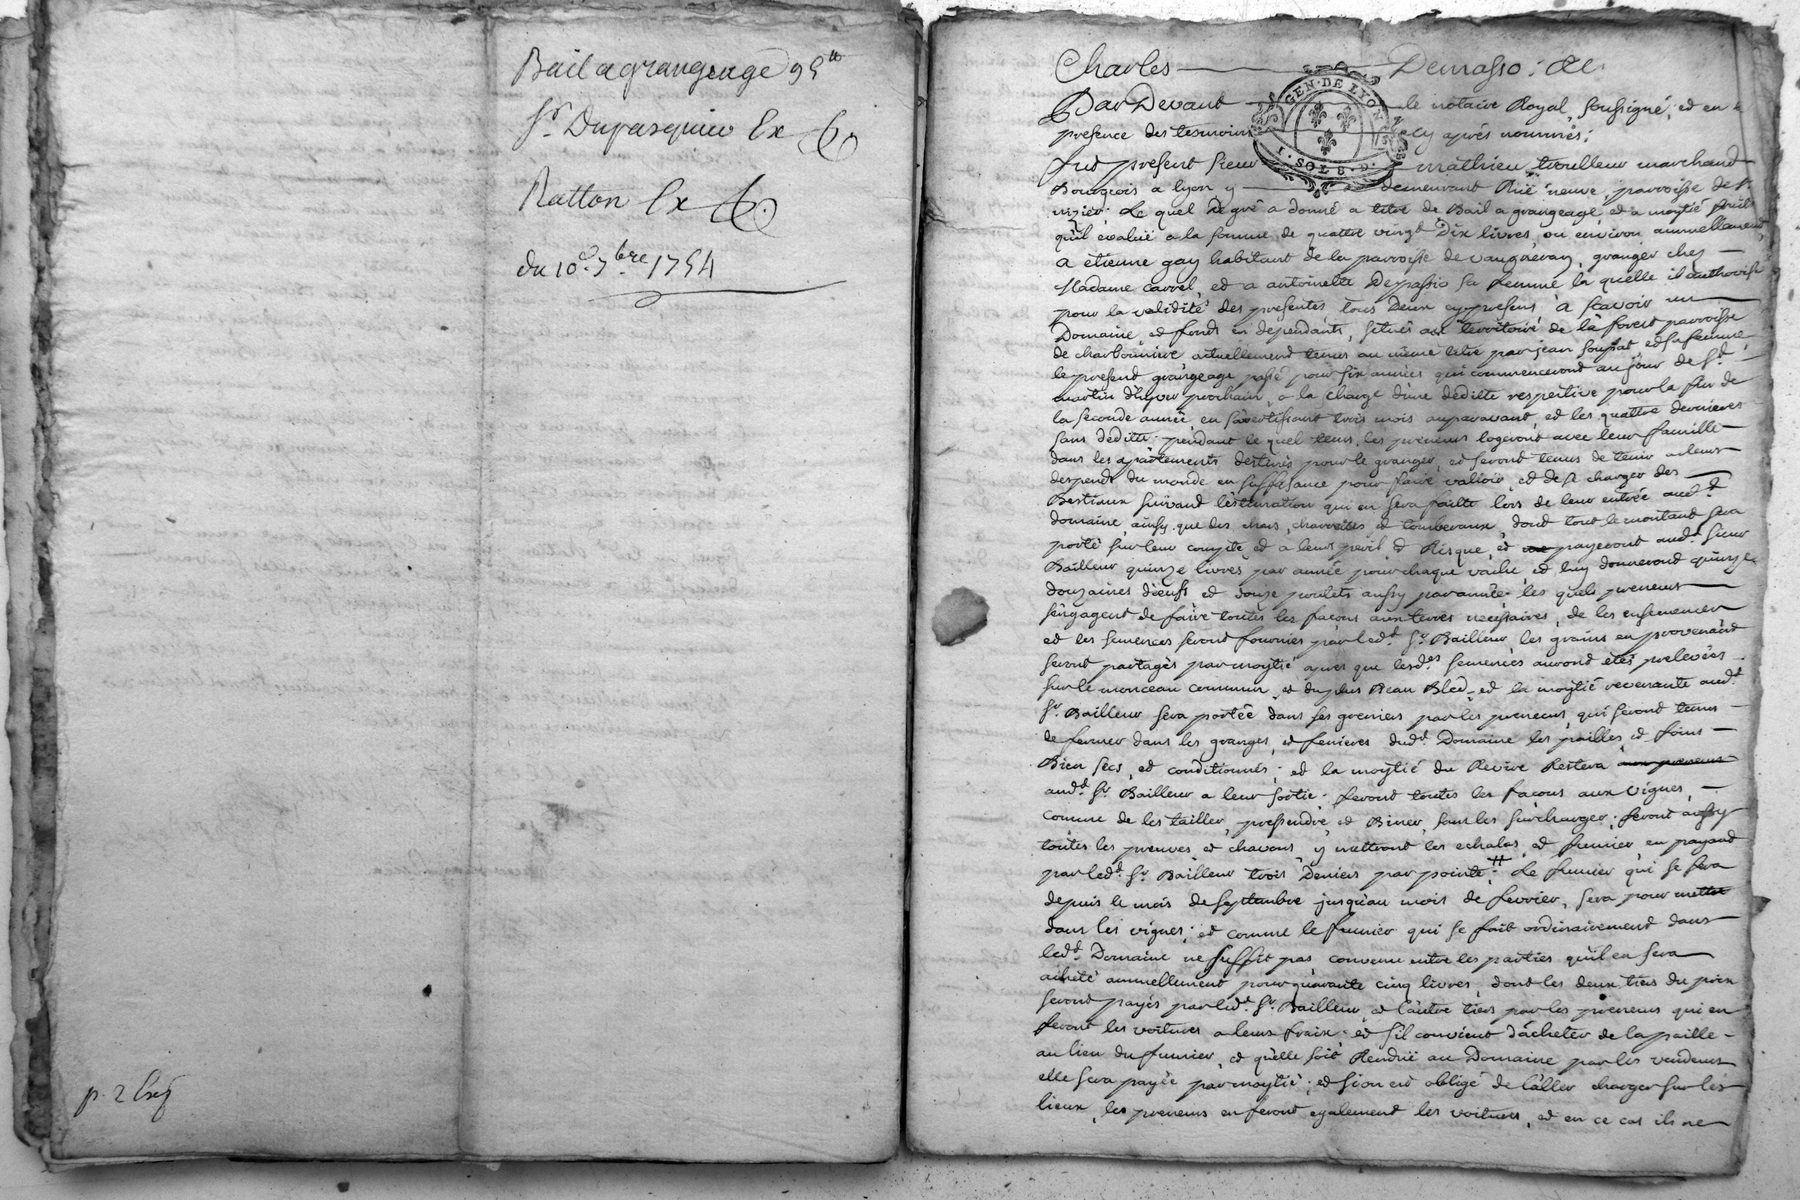 Bail a grangeage 95tt
Sr. Dupasquier Ex
Ratton Ex
du 10e. 7bre 1754
p. 2 Exp
Charles Demasso: &c.
GEN. DE LYON
I. SOLS. 8. D.
Par Devant le notaire Royal, soussigné, et en
presence des tesmoins cy aprés nommés;
fut present sieur mathieu marchand
Bourgeois a lyon y demeurant Ruë neuve, parroisse de St.
nizier; Le quel de gré a donné a titre de Bail a grangeage, et a moytié fruit
qu'il evalüe a la somme de quattre vingt Dix livres, ou environ annuellement,
a etienne gay habitant de la parroisse de vaugneray, granger chez
Madame carrel, et a antoinette Depassio sa femme la quelle il authorise
pour la validité des presentes tous Deux cy presens, a sçavoir un
Domaine, et fonds en dependants, situés au territoire de la forest parroisse
de charbonniere actuellement tenus au même titre par jean et sa femme,
le present grangeage passé pour six années qui commenceront au jour de St.
martin d'hyver prochain, a la charge d'une deditte respective pour la fin de
la seconde année, en s'avertissant trois mois auparavant, et les quattre dernieres
sans deditte; pendant le quel tems, les preneurs logeront avec leur famille
dans les apartements destinés pour le granger, et seront tenus de tenir a leurs
despends du monde en suffisance pour faire valloir, et de se charger des
Bestiaux suivant l'estimation qui en sera faitte lors de leur entrée audt.
domaine, ainsy que des chars, charrettes et tombereaux, dont tout le montant sera
porté sur leur compte, et a leurs peril et Risque, et payeront audt. sieur
Bailleur quinze livres par année pour chaque vache, et luy donneront quinze
douzaines d'œufs et douze poulets aussy par année; les quels preneurs
s'engagent de faire toutes les façons aux terres necessaires, de les ensemencer
et les semences seront fournies par ledt. Sr. Bailleur les grains en provenant
seront partagés par moytié apres que lesdes. semences auront étés prelevées
sur le monceau commun, et du plus Beau Bled, et la moytié revenante audt.
Sr. Bailleur sera portée dans ses greniers par les preneurs, qui seront tenus
de fermer dans les granges, et fenieres dudt. Domaine les pailles et foins
Bien secs, et conditionnés; et la moytié du Revive Restera
audt. Sr. Bailleur a leur sortie; feront toutes les façons aux vignes,
comme de les tailler, et Biner, sans les surcharger; feront aussy
toutes les preuves et chavons y mettront les echalas et fumier en payant
par ledt. Sr. Bailleur trois Deniers par pointe; Le fumier qui se fera
depuis le mois de septembre jusqu'au mois de fevrier, sera pour mettre
dans les vignes; et comme le fumier qui se fait ordinairement dans
ledt. Domaine ne suffit pas convenu entre les parties qu'il en sera
acheté annuellement pour quarante cinq livres, dont les deux tiers du prix
seront payés par ledt. Sr. Bailleur, et l'autre tiers par les preneurs qui en
feront les voitures a leurs fraix; et s'il convient d'acheter de la paille
au lieu du fumier, et qu'elle soit Renduë au Domaine par les vendeurs
elle sera payée par moytié; et si on est obligé de l'aller charger sur les
lieux, les preneurs en feront egalement les voitures, et en ce cas ils ne